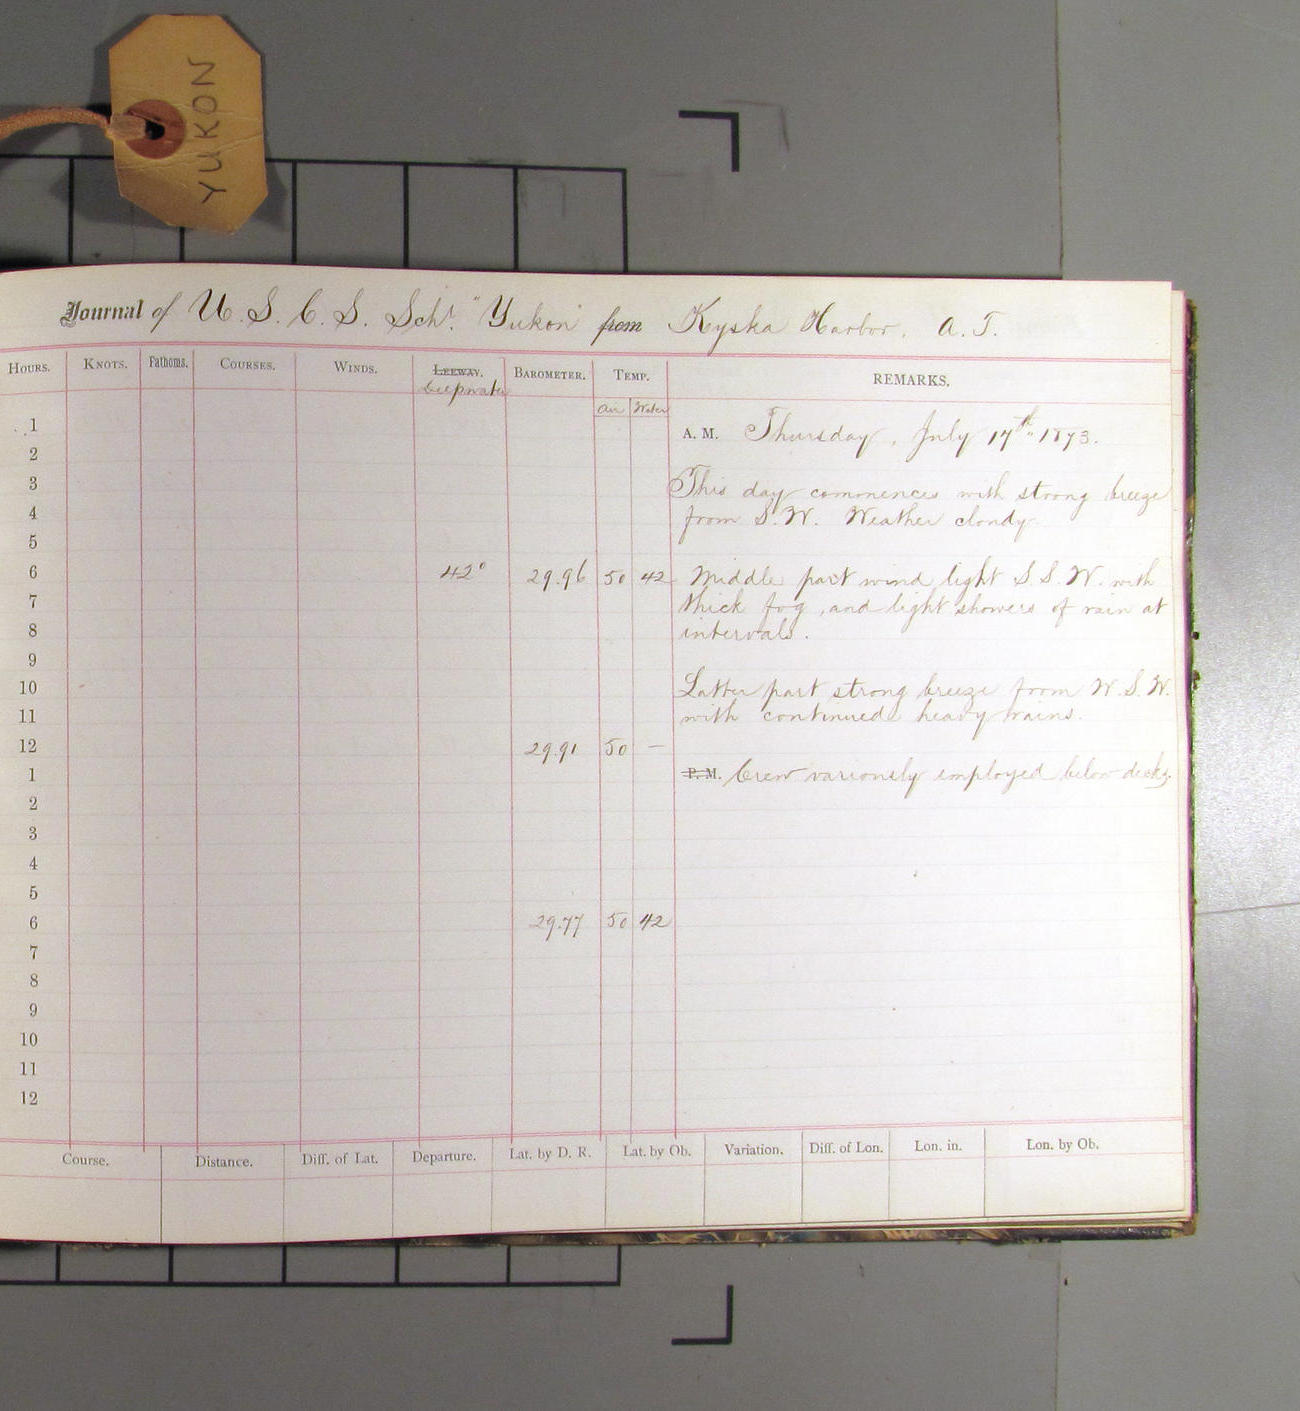 YUKON
Journal of U. S. C. S. Schr. "Yukon" from Kyska Harbor. A. T.
HOURS. KNOTS. Fathoms. COURSES. WINDS. LEEWAY. BAROMETER. TEMP. REMARKS.
Deepwater
Air Water
1 A. M. Thursday, July 17th 1873.
2
3 This day commences with strong breeze
4 from S. W. Weather cloudy
5
6 42° 29.96 50 42 Middle part wind light S. S. W. with
7 thick fog, and light showers of rain at
8 intervals.
9
10 Latter part strong breeze from W. S. W.
11 with continued heavy rains.
12 29.91 50 —
1 P. M. Crew variously employed below decks.
2
3
4
5
6 29.77 50 42
7
8
9
10
11
12
Course. Distance. Diff. of Lat. Departure. Lat. by D. R. Lat. by Ob. Variation. Diff. of Lon. Lon. in. Lon. by Ob.